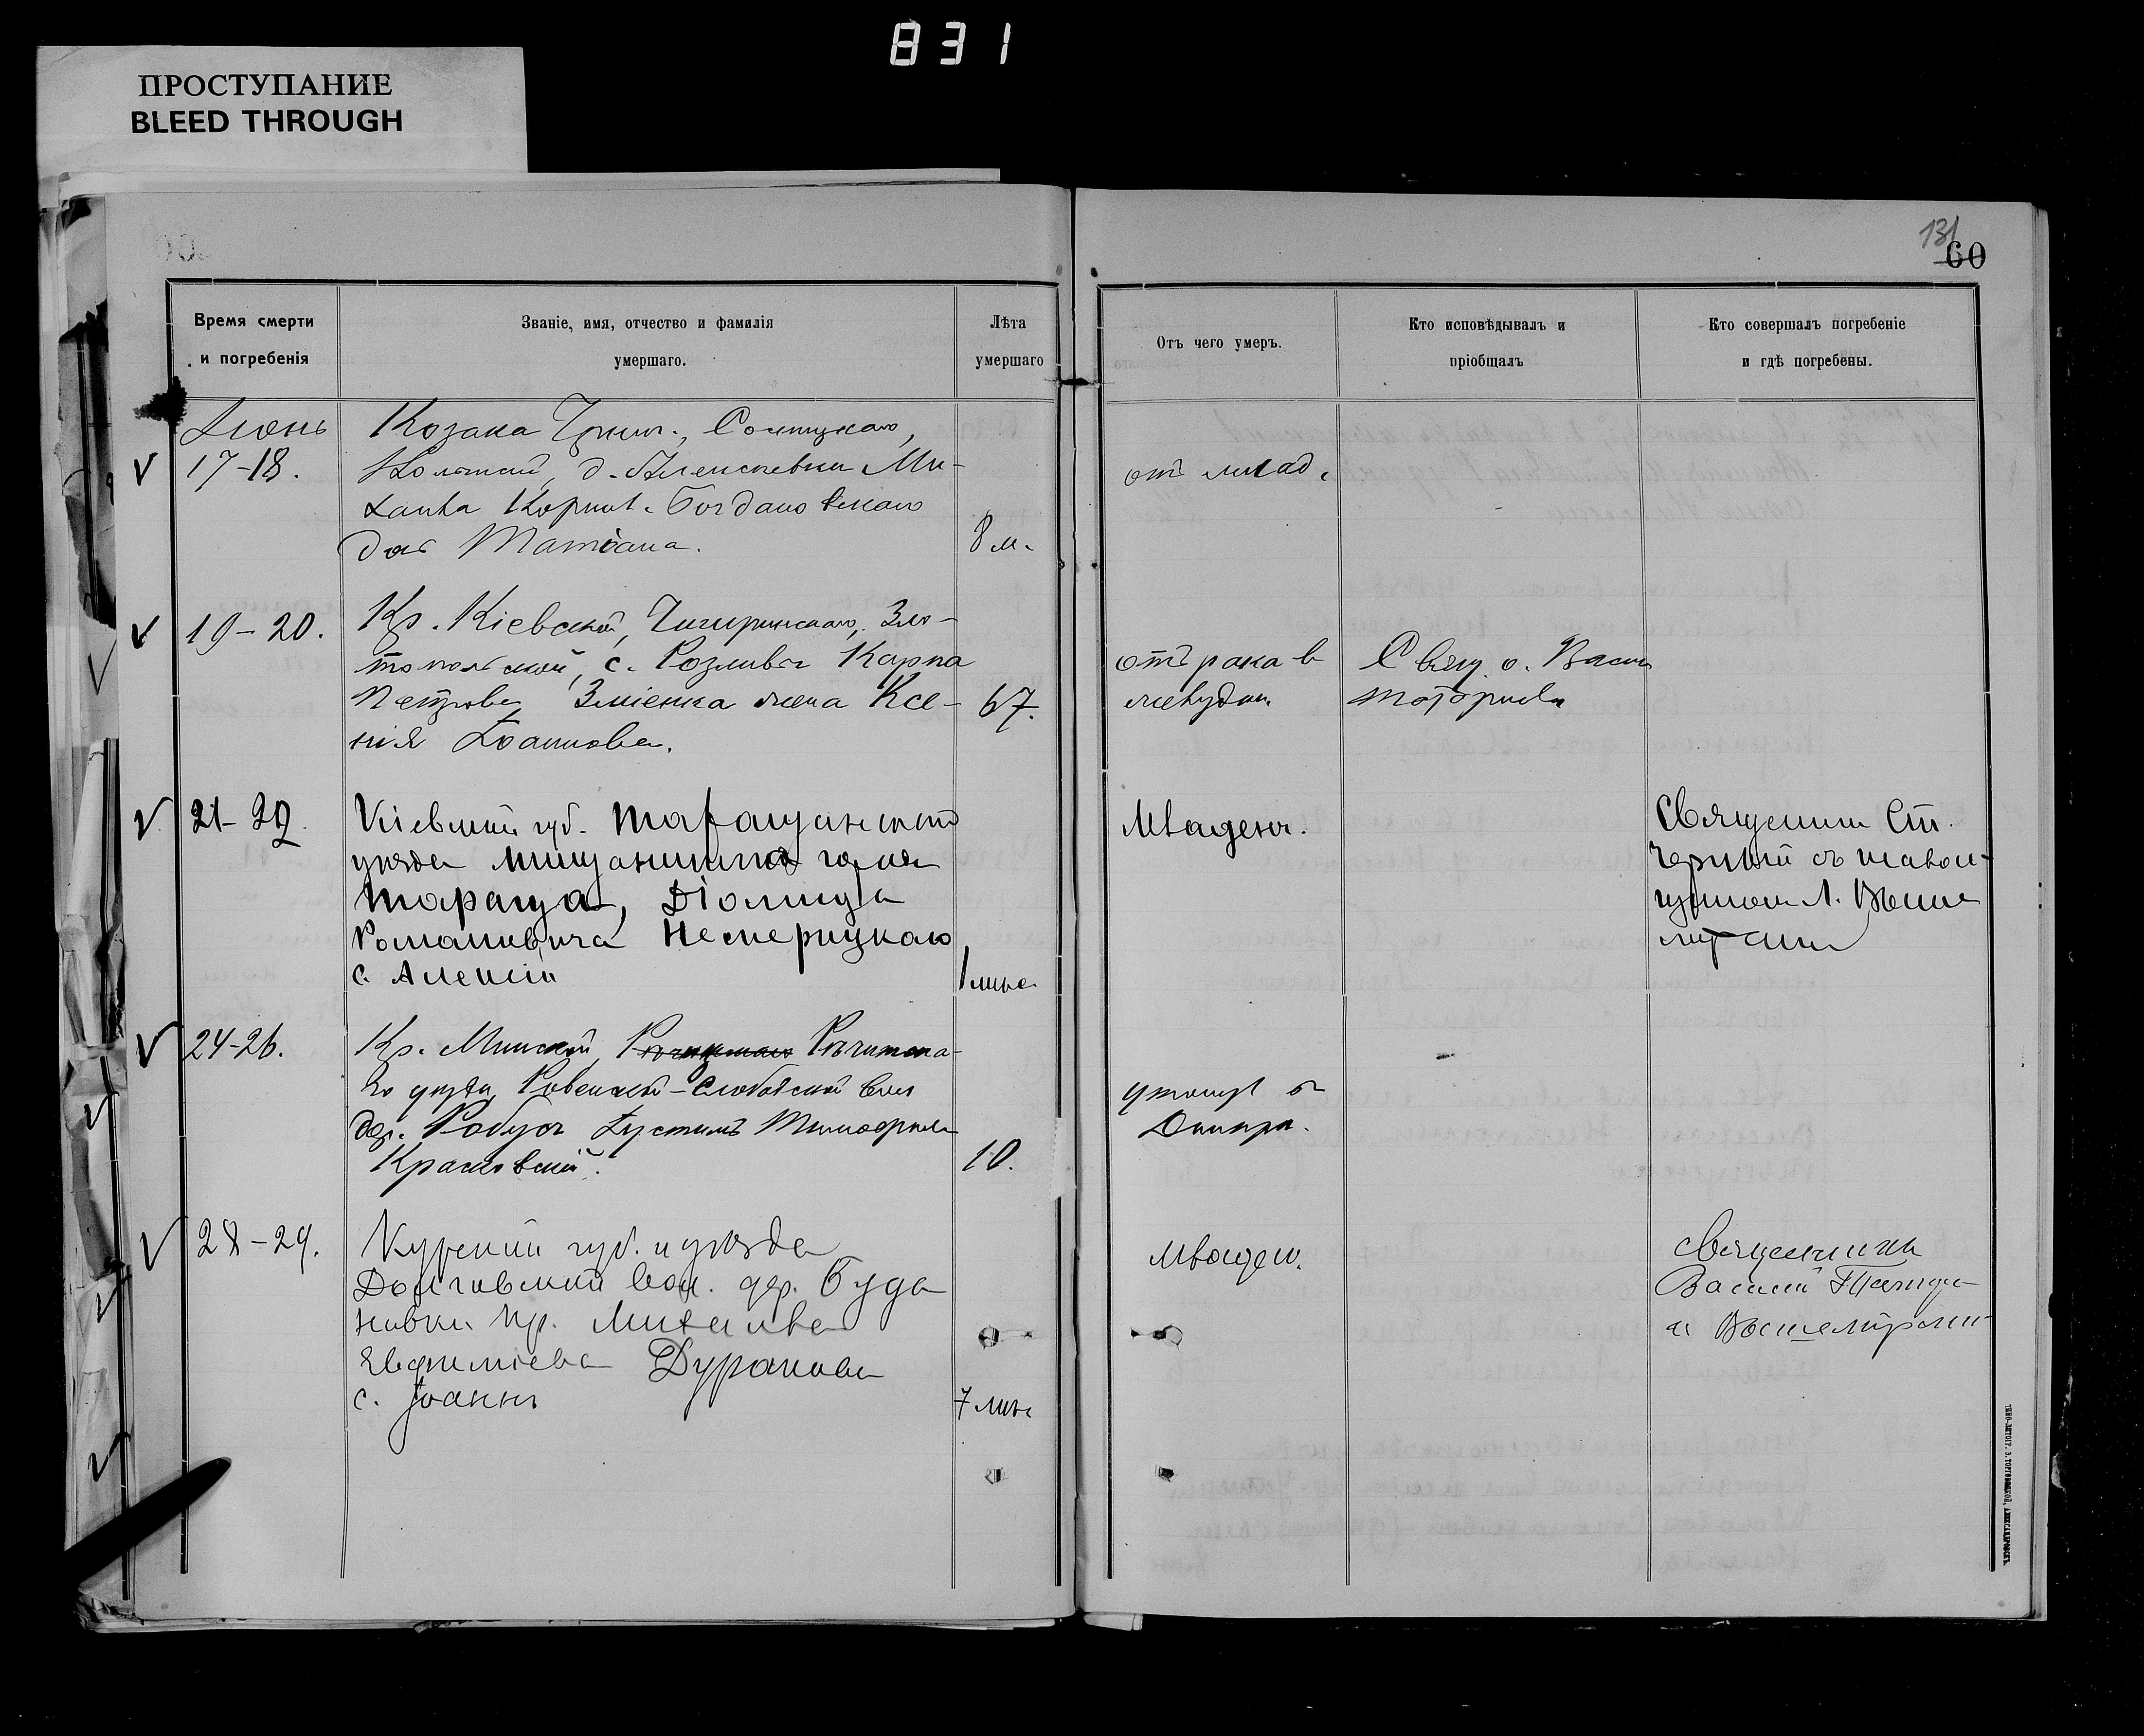 831
ПРОСТУПАНИЕ
BLEED THROUGH
131
60
Время смерти
и погребенія
Званіе, имя, отчество и фамилія
умершаго.
Лѣта
умершаго
Отъ чего умеръ.
Кто исповѣдывалъ и
пріобщалъ
Кто совершалъ погребеніе
и гдѣ погребены.
Іюнь
17-18.
Козака Черниг., Сосницкаго,
д. Алексѣевки Ми-
хаила Корнил. Богдановскаго
доч Татіана.
8 м.
отъ млад.
19-20.
Кр. Кіевской, Чигиринскаго, Зла-
топольской, с. Розливы Карпа
Петрова Зміенка жена Ксе-
нія Іоаннова.
67.
отъ рака в
желудкѣ
Свящ. о. Васил
21-22.
Кіевской губ. Таращанскаго
уѣзда мищанина города
Тараща, Діомида
Романовича Немерицкаго
с. Алексій
1 мис.
Младенч.
Священник Ст.
Черный съ псалом-
щиком Л. Выше
мірским
24-26.
Кр. Минской, Рѣчицкаго Рѣчицка-
го уѣзда, Ровенской-Слободской вол
дер. Робусъ Іустинъ Тимофеев
Красовскій.
10.
утонул въ
Днипри.
28-29.
Курской губ. и уѣзда
Долговской вол. дер. Буда
новки кр. Михаила
Евфиміева Дуракова
с. Іоаннъ
7 мис
Младен.
Священникъ
Василій
и Вышемірски